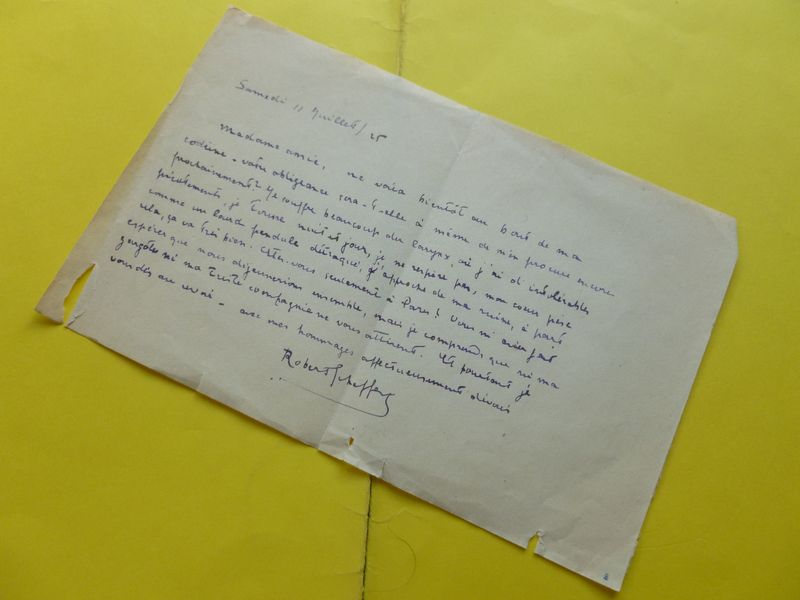 Samedi 11 Juillet/25
Madame amie, me voici bientôt au bout de ma
codéine – votre obligeance sera-t-elle à même de m'en procurer encore
prochainement? Je souffre beaucoup du larynx, où j'ai d'intolérables
picotements, je tousse nuit et jour, je ne respire pas, mon cœur pèse
comme un lourd pendule détraqué, j'approche de ma ruine, à part
cela, ça va très bien. Etes-vous seulement à Paris? Vous m'aviez fait
espérer que nous déjeunerions ensemble, mais je comprends que ni ma
gargote ni ma triste compagnie ne vous attirent. Et pourtant je
voudrais au revoir –
avec mes hommages affectueusement dévoués
Robert Scheffer